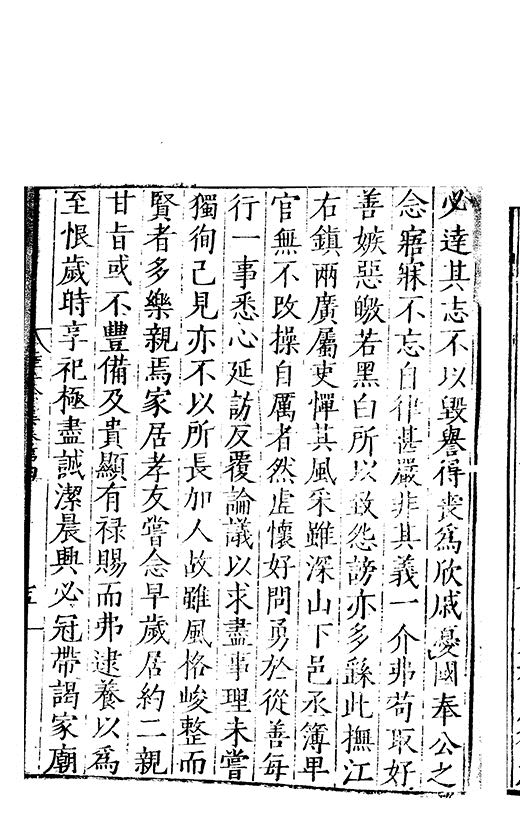 必達其志不以毀譽得喪爲欣戚憂國奉公之
念寤寐不忘自律甚嚴非其義一介弗苟取好
善嫉惡皦若黑白所以致怨謗亦多繇此撫江
右鎮兩廣屬吏憚其風采雖深山下邑丞簿卑
官無不改操自厲者然虛懷好問勇於從善每
行一事悉心延訪反覆論議以求盡事理未嘗
獨徇己見亦不以所長加人故雖風格峻整而
賢者多樂親焉家居孝友嘗念早歲居約二親
甘旨或不豐備及貴顯有禄賜而弗逮養以爲
至恨歲時享祀極盡誠潔晨興必冠帶謁家廟